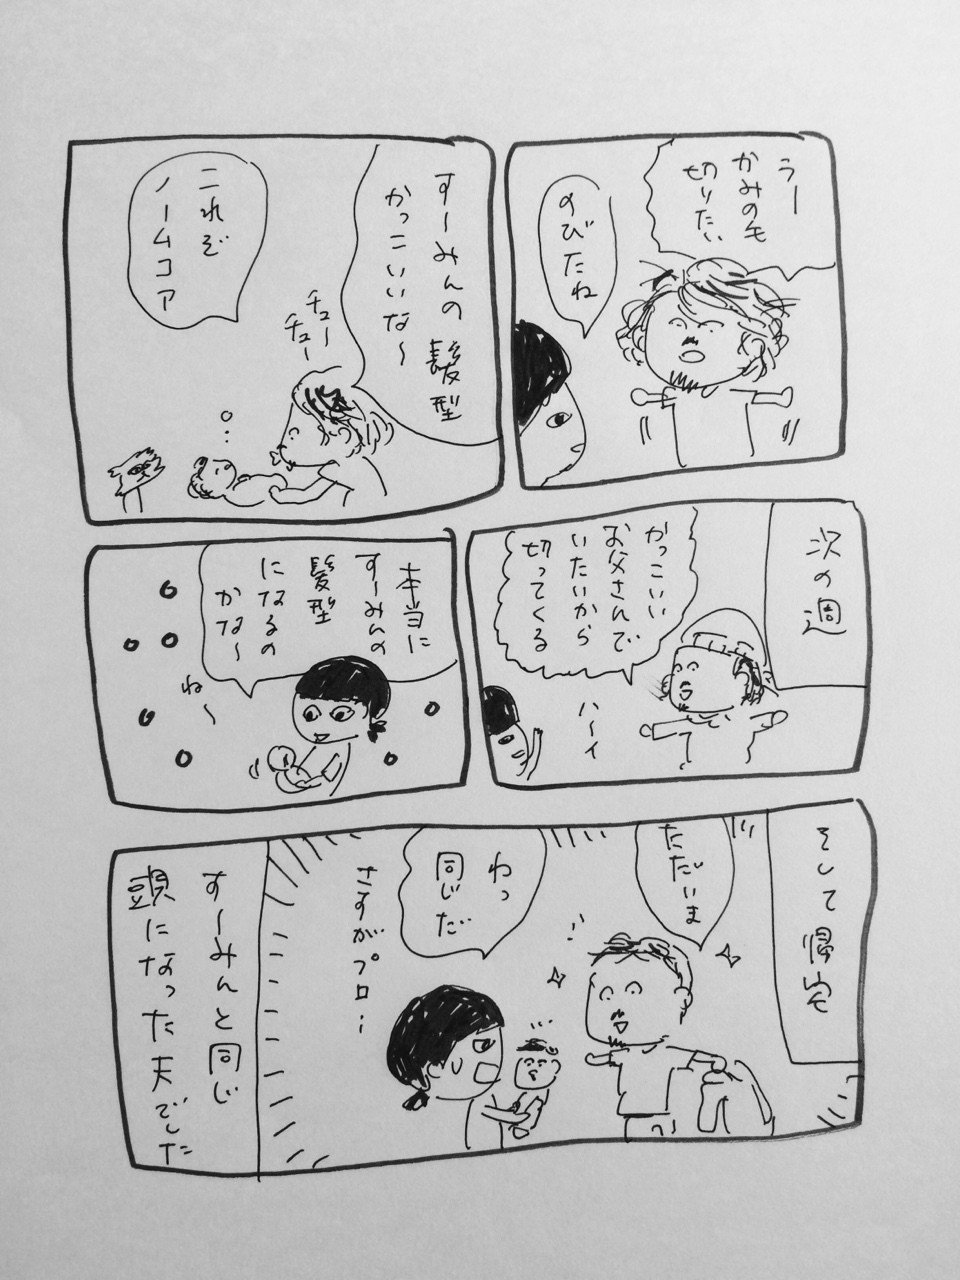 うー
かみの毛
切りたい
のびたね
すーみんの髪型
かっこいいな〜
チュー
チュー
これぞ
ノームコア
次の週
かっこいい
お父さんで
いたいから
切ってくる
ハーイ
本当に
すーみんの
髪型
になるの
かな〜
ね〜
そして帰宅
ただいま
わっ
同じだ
さすがプロ…
すーみんと同じ
頭になった夫でした